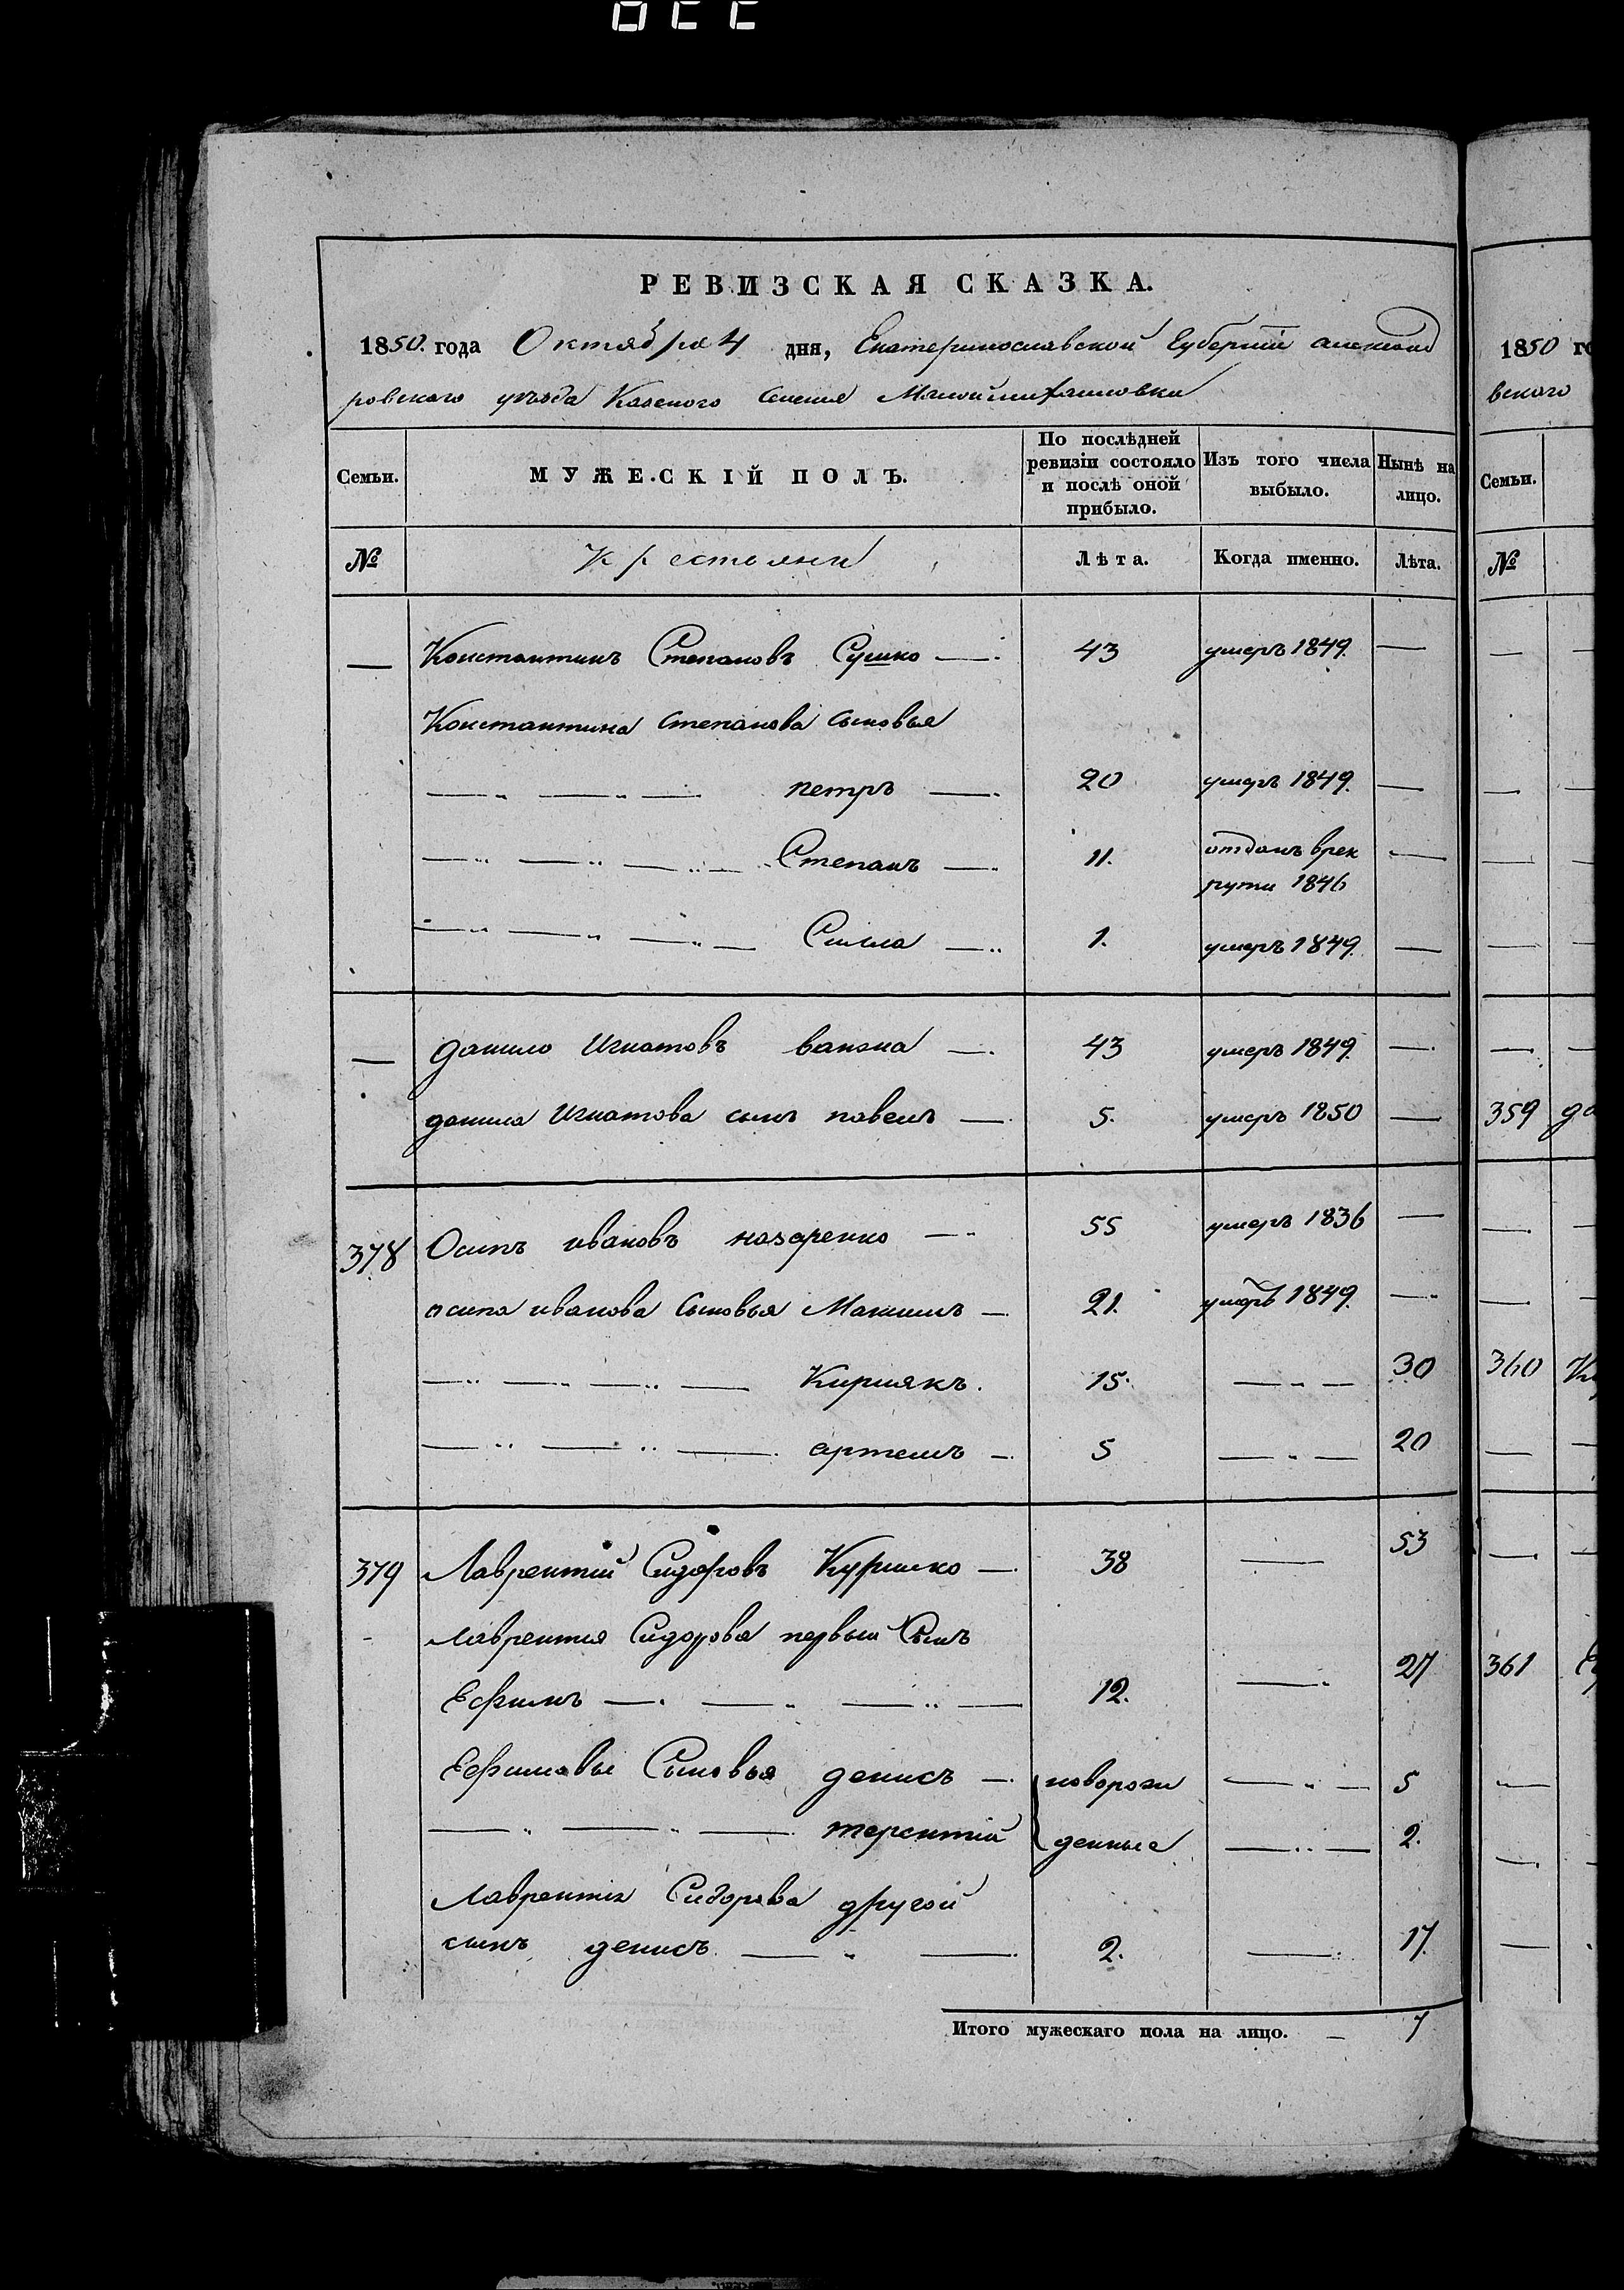 РЕВИЗСКАЯ СКАЗКА.
1850. года Октября 4 дня, Екатеринославской Губерніи александ
ровскаго уѣзда Казеного Селенія Маломихайловки
Семьи. МУЖЕСКІЙ ПОЛЪ. По послѣдней ревизіи состояло и послѣ оной прибыло. Изъ того числа выбыло. Нынѣ на лицо.
№ Крестьяни Лѣта. Когда именно. Лѣта.
— Константинъ Степановъ Сушко — 43 умеръ 1849. —
Константина Степанова сыновья
— — — петръ — 20 умеръ 1849. —
— — — Степанъ — 11. отданъ врек —
рути 1846
— — — Сила — 1. умеръ 1849. —
— данило Игнатовъ — 43 умеръ 1849. —
данила Игнатова сынъ павелъ — 5. умеръ 1850 —
378 Осипъ ивановъ назаренко — 55 умеръ 1836 —
осипа иванова сыновья Максимъ — 21. умеръ 1849. —
— — — — Кириякъ. 15. — — 30
— — — артемъ — 5 — — 20
379 Лаврентий Сидоровъ Куришко — 38 — 53
лаврентия Сидорова первый Сынъ
Ефимъ — — — — 12. — 27
Ефимовы Сыновья денисъ — новорож — — 5
— — — терентій денные — — 2.
Лаврентія Сидорова другой
сынъ денисъ — — 2. — 17.
Итого мужескаго пола на лицо. — 7
1850 го
вскаго
Семьи.
№
359 да
360
361